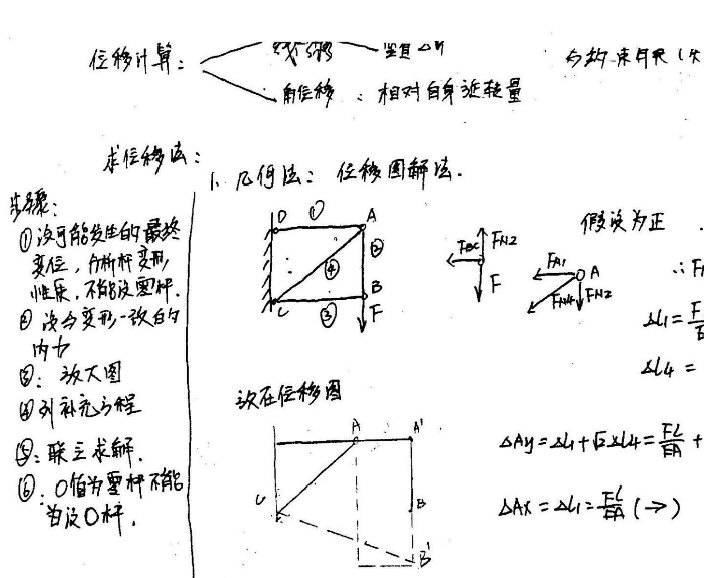 位移计算:
角位移 : 相对自身
求位移法:
1. 几何法: 位移图解法.
步骤:
①设可能发生的最终
变位, 分析杆变形
性质, 不能设零杆.
② 设与变形一致的
内力
③: 放大图
④列补充方程
⑤: 联立求解.
⑥: 0值为零杆不能
当设0杆.
D ① A
④ ②
C ③ B
F
F_{N2}
F
假设为正
F_{N1} A
F_{N4} F_{N2}
∴F
ΔL₁=F
ΔL4 =
放在位移图
A A'
C B
B'
ΔAy = ΔL₁+√2ΔL4 = FL/EA +
ΔAx = ΔL₁ = FL/EA (→)